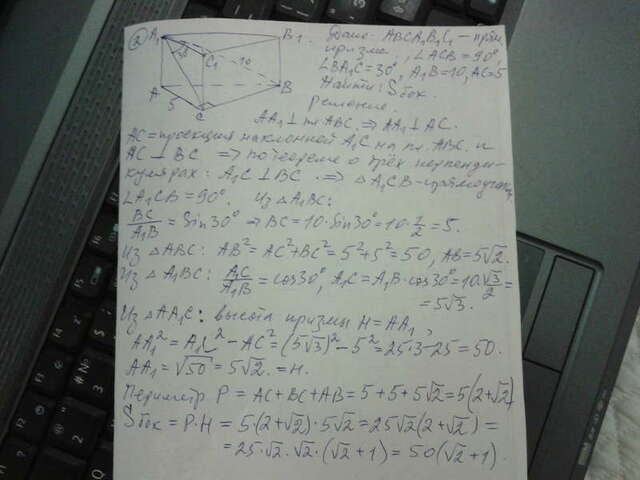 ② A₁ B₁ C₁ 30° 10 A B 5 C
Дано: ABCA₁B₁C₁ – прям.
призма, ∠ACB=90°,
∠BA₁C=30°, A₁B=10, AC=5
Найти: Sбок.
Решение.
AA₁⊥ пл. ABC. ⇒ AA₁⊥AC.
AC=проекция наклонной A₁C на пл. ABC. и
AC⊥BC ⇒ по теореме о трёх перпенди-
кулярах: A₁C⊥BC ⇒ △A₁CB-прямоугол,
∠A₁CB=90°. Из △A₁BC:
BC/A₁B = Sin30° ⇒ BC=10·Sin30°=10·1/2=5.
Из △ABC: AB²=AC²+BC²=5²+5²=50, AB=5√2.
Из △A₁BC: A₁C/A₁B=cos30°, A₁C=A₁B·cos30°=10·√3/2=
=5√3.
Из △AA₁C: высота призмы H=AA₁,
AA₁²=A₁C²-AC²=(5√3)²-5²=25·3-25=50.
AA₁=√50=5√2.=H.
Периметр P=AC+BC+AB=5+5+5√2=5(2+√2)
Sбок=P·H=5(2+√2)·5√2=25√2(2+√2)=
=25·√2·√2·(√2+1)=50(√2+1).